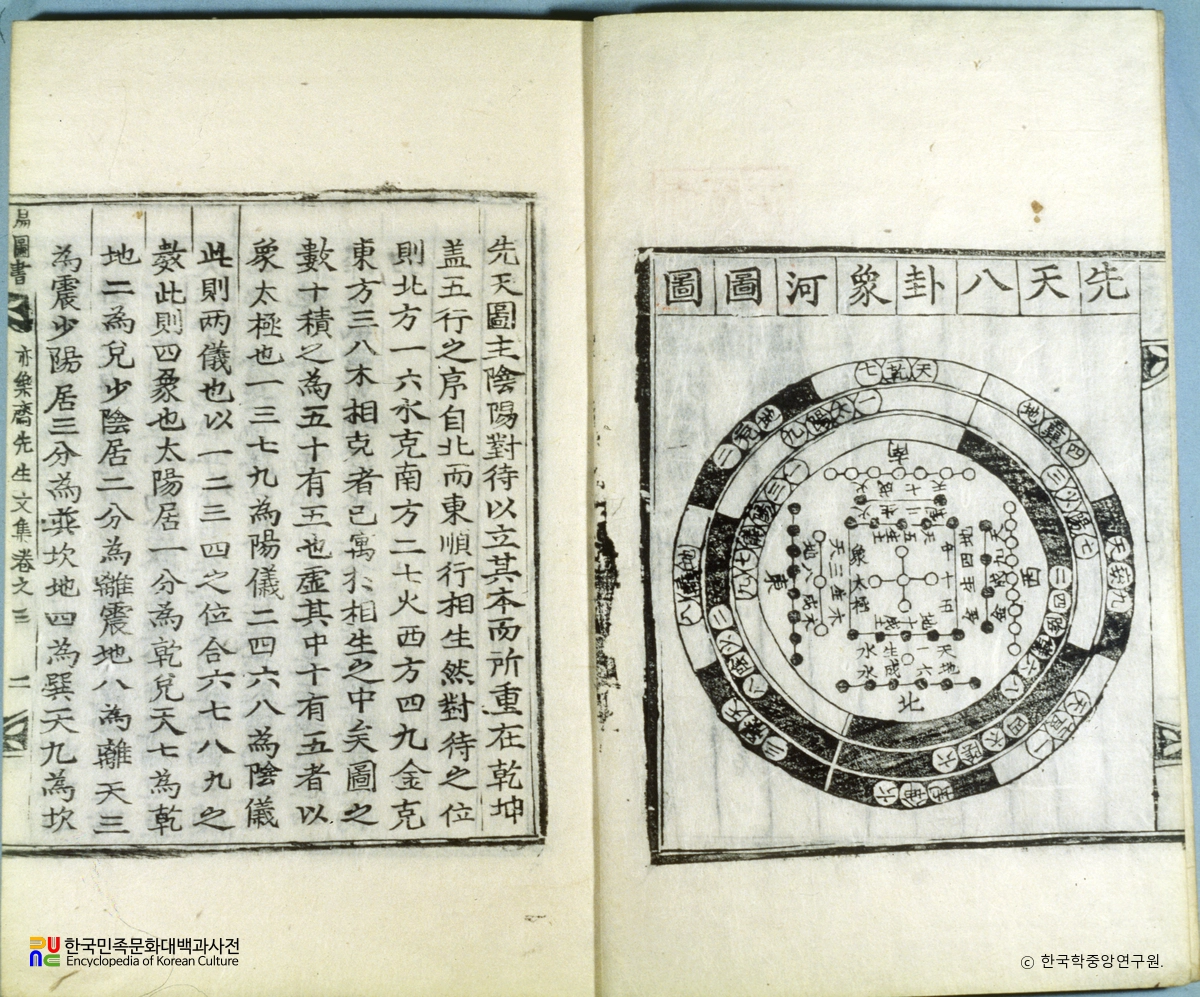 先天八卦象河圖圖
七乾天
地巽四
天坎九
天艮一
地坤六
天震三
地離八
地兌二
南
西
東
北
先天圖主陰陽對待以立其本而所重在乾坤
盖五行之序自北而東順行相生然對待之位
則北方一六水克南方二七火西方四九金克
東方三八木相克者已寓於相生之中矣圖之
數十積之為五十有五也虛其中十有五者以
象太極也一三七九為陽儀二四六八為陰儀
此則两儀也以一二三四之位合六七八九之
數此則四象也太陽居一分為乾兌天七為乾
地二為兌少陰居二分為離震地八為離天三
為震少陽居三分為巽坎地四為巽天九為坎
易圖書 亦樂齋先生文集卷之三 二
한국민족문화대백과사전
Encyclopedia of Korean Culture
ⓒ 한국학중앙연구원.